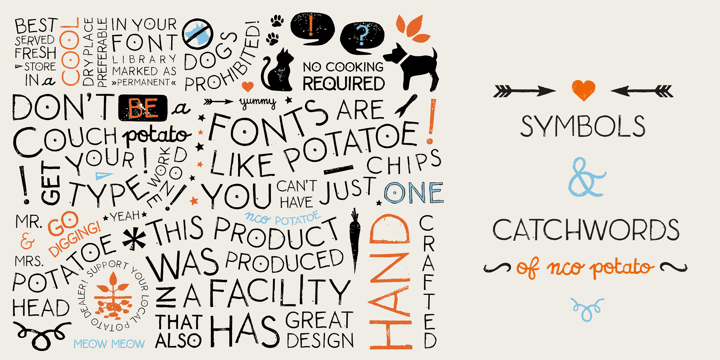 BEST
SERVED
FRESH
STORE
IN a
COOL
DRY PLACE
PREFERABLE
IN YOUR
FONT
LIBRARY
MARKED AS
»PERMANENT«
DOGS
PROHIBITED!
!
?
NO COOKING
REQUIRED
DON'T BE a
COUCH potato
! GET YOUR!
TYPE
WORK
DONE!
yummy
FONTS ARE
LIKE POTATOE!
CHIPS
YOU CAN'T
HAVE JUST ONE
nco POTATOE
MR.
& GO
DIGGING!
MRS.
POTATOE
HEAD
YEAH
SUPPORT YOUR LOCAL POTATO DEALER!
MEOW MEOW
*THIS PRODUCT
WAS PRODUCED
IN A FACILITY
THAT
ALSO HAS GREAT
DESIGN
HAND
CRAFTED
SYMBOLS
&
CATCHWORDS
of nco potato